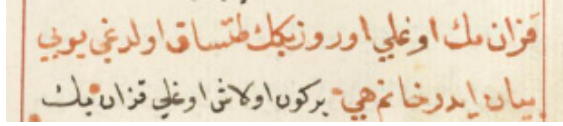 قزان بك اوغلي اوروز بكك طتساق اولدغي بويي
بيان ايدر خانم هي بركون اولاش اوغلي قزان بك